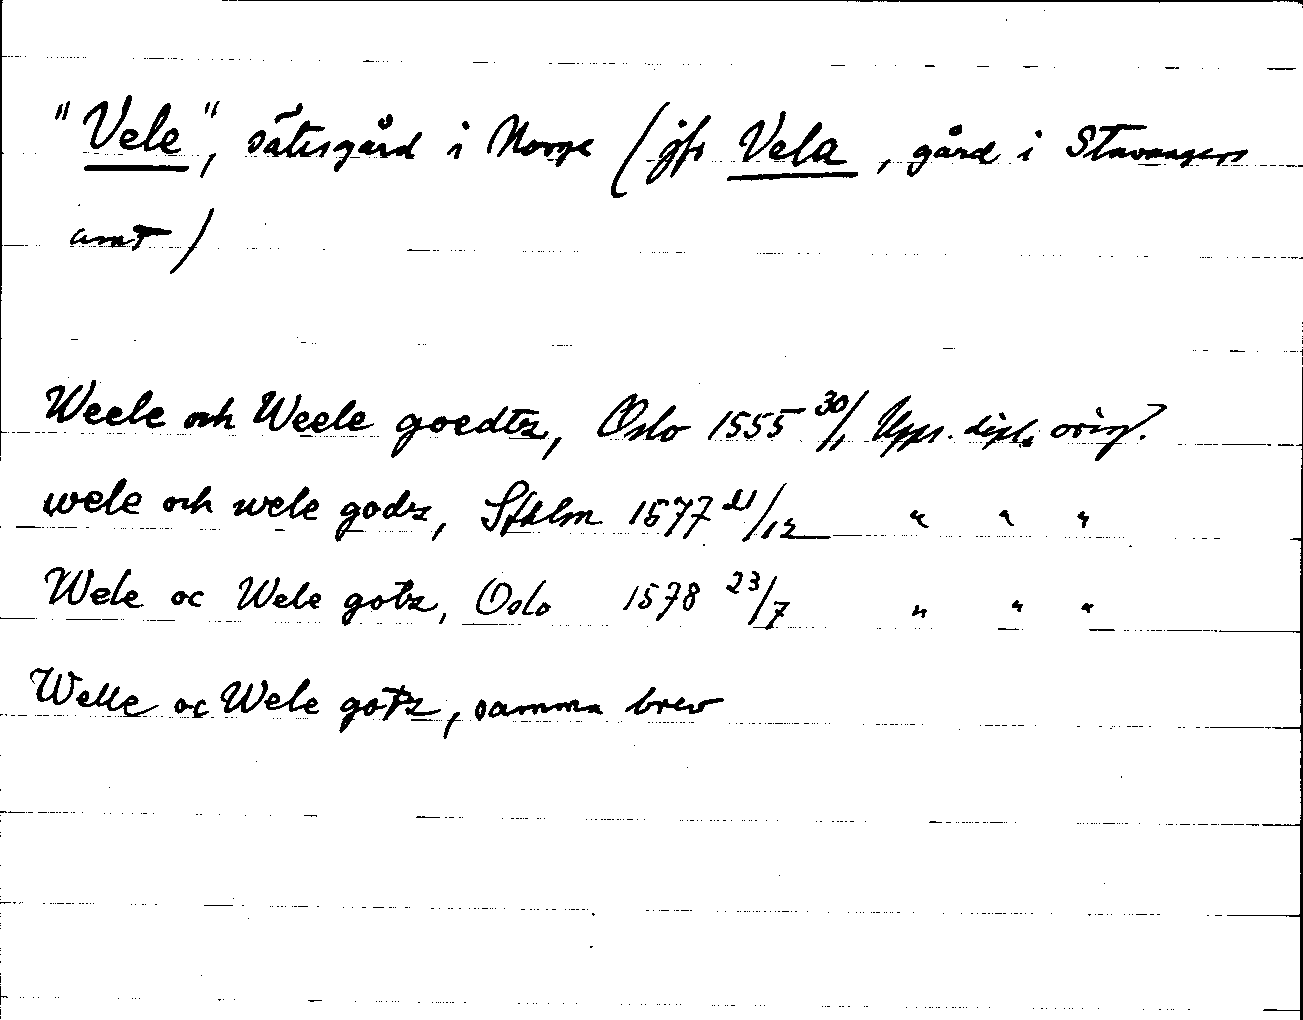 "Vele", sätesgård i Norge (jfr Vela, gård i Stavangers
amt)
Weele och Weele goedtz, Oslo 1555 30/1 Upps. dipl. orig.
wele och wele godz, Sthlm 1577 21/12 " " "
Wele oc Wele gotz, Oslo 1578 23/7 " " "
Welle oc Wele gotz, samma brev